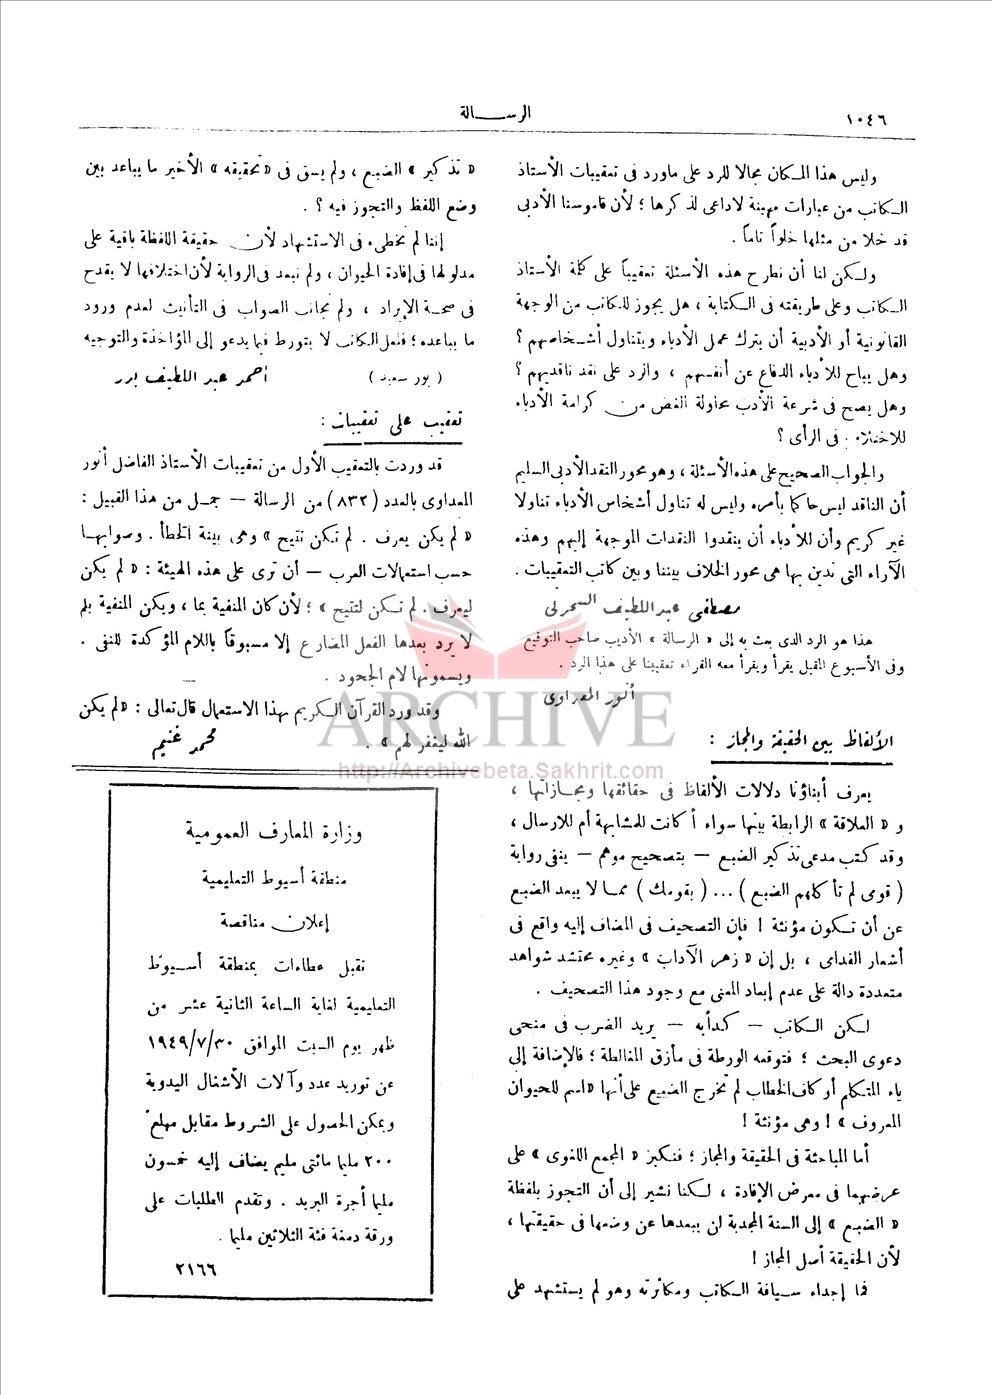 ١٠٤٦
الرســالة
وليس هذا المكان مجالا للرد على ماورد فى تعقيبات الأستاذ
الكاتب من عبارات مهينة لاداعى لذكرها ؛ لأن قاموسنا الأدبى
قد خلا من مثلها خلواً تاماً .
ولكن لنا أن نطرح هذه الأسئلة تعقيباً على كلمة الأستاذ
الكاتب وعلى طريقته فى الكتابة ، هل يجوز للكاتب من الوجهة
القانونية أو الأدبية أن يترك عمل الأدباء ويتناول أشخاصهم ؟
وهل يباح للأدباء الدفاع عن أنفسهم ، والرد على نقد ناقديهم ؟
وهل يصح فى شرعة الأدب محاولة الغض من كرامة الأدباء
للاختلاف فى الرأى ؟
والجواب الصحيح على هذه الأسئلة ، وهو محور النقد الأدبى السليم
أن الناقد ليس حاكما بأمره وليس له تناول أشخاص الأدباء تناولا
غير كريم وأن للأدباء أن ينقدوا النقدات الموجهة إليهم وهذه
الآراء التى ندين بها هى محور الخلاف بيننا وبين كاتب التعقيبات .
مصطفى عبد اللطيف السحرتى
هذا هو الرد الذى بعث به إلى « الرسالة » الأديب صاحب التوقيع
وفى الأسبوع المقبل يقرأ ويقرأ معه القراء تعقيبنا على هذا الرد .
أنور المعداوى
الألفاظ بين الحقيقة والمجاز :
يعرف أبناؤنا دلالات الألفاظ فى حقائقها ومجازاتها ،
و « العلاقة » الرابطة بينها سواء أكانت للمشابهة أم للارسال ،
وقد كتب مدعى تذكير الضبع — بتصحيح موهم — ينفى رواية
( قومى لم تأكلهم الضبع ) ... ( بقومك ) مما لا يبعد الضبع
عن أن تكون مؤنثة ! فإن التصحيف فى المضاف إليه واقع فى
أشعار القدامى ، بل إن « زهر الآداب » وغيره محتشد شواهد
متعددة دالة على عدم إبعاد المعنى مع وجود هذا التصحيف .
لكن الكاتب — كدأبه — يريد الضرب فى منحى
دعوى البحث ؛ فتوقعه الورطة فى مأزق المغالطة ؛ فالإضافة إلى
ياء المتكلم أو كاف الخطاب لم تخرج الضبع على أنها « اسم للحيوان
المعروف » ! وهى مؤنثة !
أما المباحثة فى الحقيقة والمجاز ؛ فنكبر « المجمع اللغوى » على
عرضهما فى معرض الإفادة ، لكنا نشير إلى أن التجوز بلفظة
« الضبع » إلى السنة المجدبة لن يبعدها عن وضعها فى حقيقتها ،
لأن الحقيقة أصل المجاز !
فما إجداء سياقة الكاتب ومكاثرته وهو لم يستشهد على
« تذكير » الضبع ، ولم يسق فى « تحقيقه » الأخير ما يباعد بين
وضع اللفظ والتجوز فيه ؟ .
إننا لم نخطىء فى الاستشهاد لأن حقيقة اللفظة باقية على
مدلولها فى إفادة الحيوان ، ولم نبعد فى الرواية لأن اختلافها لا يقدح
فى صحة الإيراد ، ولم نجانب الصواب فى التأنيث لعدم ورود
ما يباعده ؛ فلعل الكاتب لا يتورط فيما يدعو إلى المؤاخذة والتوجيه
( بور سعيد ) أحمد عبد اللطيف بدر
تعقيب على تعقيبات :
قد وردت بالتعقيب الأول من تعقيبات الأستاذ الفاضل أنور
المعداوى بالعدد (٨٣٢) من الرسالة — جمل من هذا القبيل :
« لم يكن يعرف . لم تكن تتيح » وهى بينة الخطأ . وصوابها
حسب استعمالات العرب — أن ترى على هذه الهيئة : « لم يكن
ليعرف . لم تكن لتتيح » ؛ لأن كان المنفية بما ، ويكن المنفية بلم
لا يرد بعدها الفعل المضارع إلا مسبوقاً باللام المؤكدة للنفى .
ويسمونها لام الجحود .
وقد ورد القرآن الكريم بهذا الاستعمال قال تعالى : « لم يكن
الله ليغفر لهم » .
محمد غنيم
وزارة المعارف العمومية
منطقة أسيوط التعليمية
إعلان مناقصة
تقبل عطاءات بمنطقة أسيوط
التعليمية لغاية الساعة الثانية عشر من
ظهر يوم السبت الموافق ١٩٤٩/٧/٣٠
عن توريد عدد وآلات الأشغال اليدوية
ويمكن الحصول على الشروط مقابل مبلغ
٢٠٠ مليما مائتى مليم يضاف إليه خمسون
مليما أجرة البريد . وتقدم الطلبات على
ورقة دمغة فئة الثلاثين مليما .
٢١٦٦
ARCHIVE
http://Archivebeta.Sakhrit.com